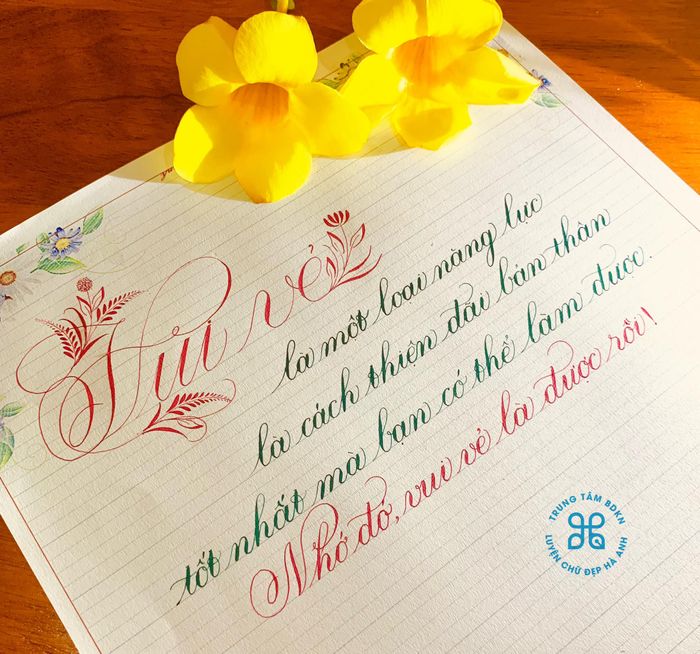 Vui vẻ
là một loại năng lực
là cách thiện đãi bản thân
tốt nhất mà bạn có thể làm được.
Nhớ đó, vui vẻ là được rồi!
TRUNG TÂM BDKN
LUYỆN CHỮ ĐẸP HÀ ANH